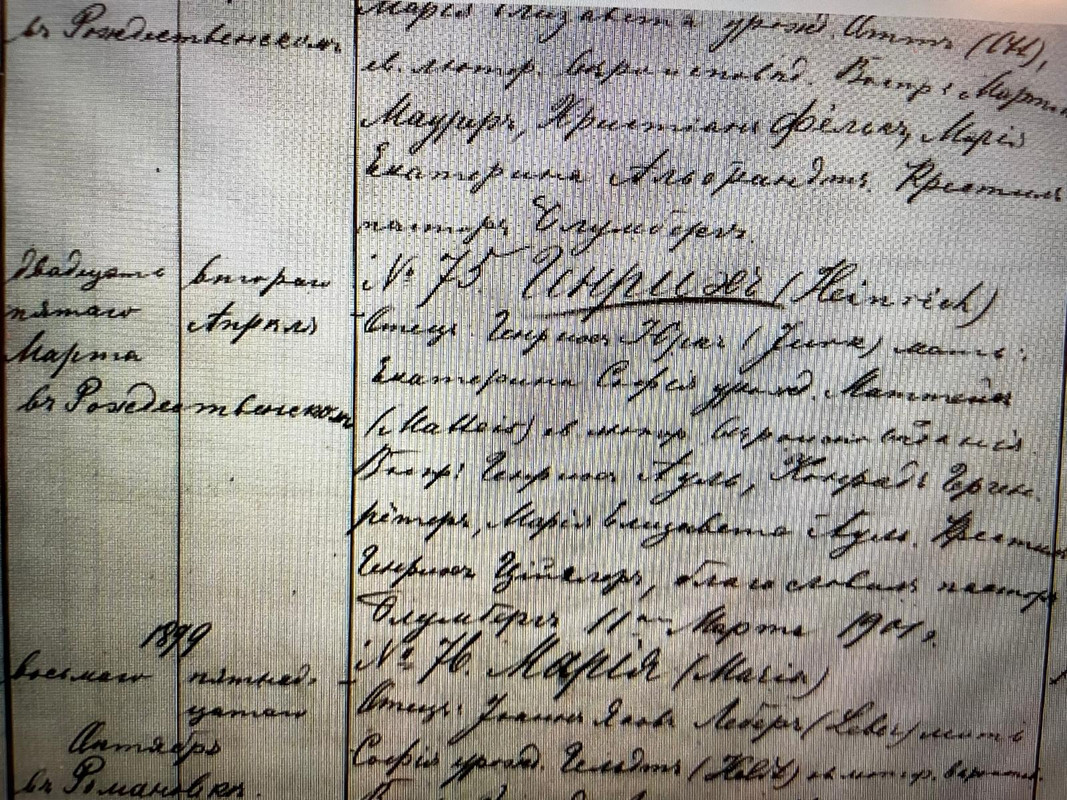 въ Рождественскомъ
Марія Елизавета урожд. Оттъ (Ott),
ев. лютер. Воспр: Мартинъ
Мауреръ, Христіанъ Фёлькъ, Марія
Екатерина Альбрандтъ. Крестилъ
пасторъ Блумбергъ.
двадцать второго № 75. Генрихъ (Heinrich)
пятаго Апрѣля Отецъ: Генрихъ Юркъ (Jurk) мать:
Марта Екатерина Софія урожд. Маттеисъ
въ Рождественскомъ (Matteis) ев. лютер. вѣроисповѣданія.
Воспр: Генрихъ Ауль, Конрадъ Герген-
рётеръ, Марія Елизавета Ауль. Крестилъ
Генрихъ Цйглеръ, благословилъ пасторъ
Блумбергъ 11го Марта 1901 г.
1899
восьмаго пятнад- № 76. Марія (Maria)
цатаго Отецъ: Іоаннъ Яковъ Леберъ (Leber) мать
Октября Софія урожд. Гельдтъ (Held) ев. лютер. вѣроисп.
въ Романовкѣ.